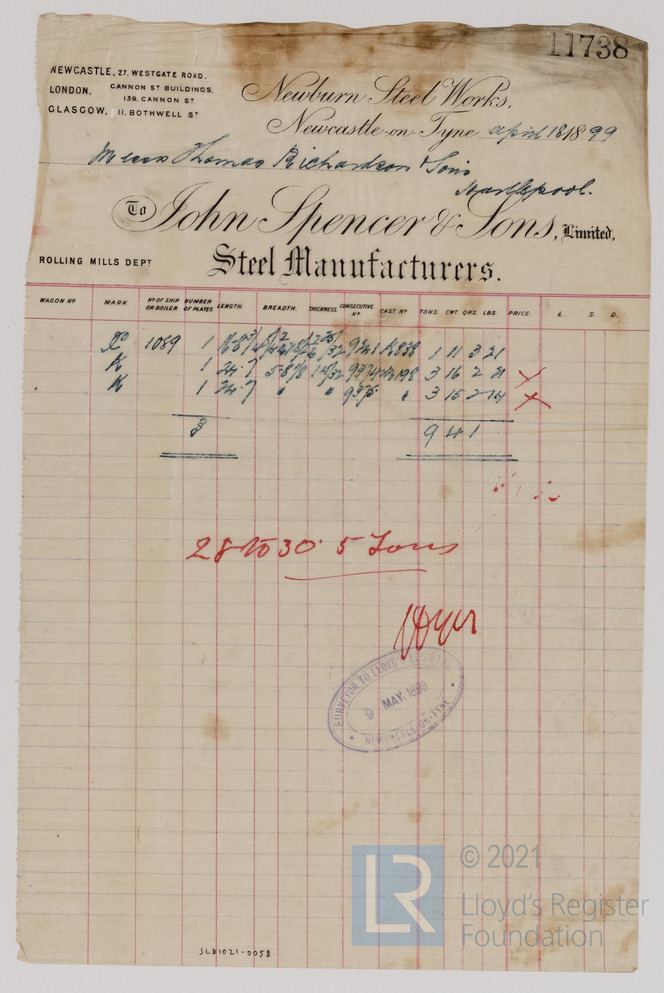 11738
NEWCASTLE, 27, WESTGATE ROAD.
LONDON, CANNON ST BUILDINGS,
139, CANNON ST
GLASGOW, 11, BOTHWELL ST
Newburn Steel Works,
Newcastle-on-Tyne april 18 1899
Messrs Thomas Richardson & Sons
Hartlepool.
To John Spencer & Sons, Limited,
ROLLING MILLS DEPT
Steel Manufacturers.
WAGON No MARK No OF SHIP OR BOILER NUMBER OF PLATES LENGTH. BREADTH. THICKNESS. CONSECUTIVE No CAST No TONS. CWT. QRS. LBS. PRICE. £. S. D.
1089 1 1 11 3 21
K 1 24.7 5.8 7/8 9374 3 16 2 21
K 1 24.7 " " 9375 " 3 15 2 14
3 9 4 1
28 to 30. 5 Tons
SURVEYOR TO LLOYD'S REGISTER
9 MAY. 1899
NEWCASTLE-ON-TYNE
LR
© 2021
Lloyd's Register
Foundation
SLD1021-0058